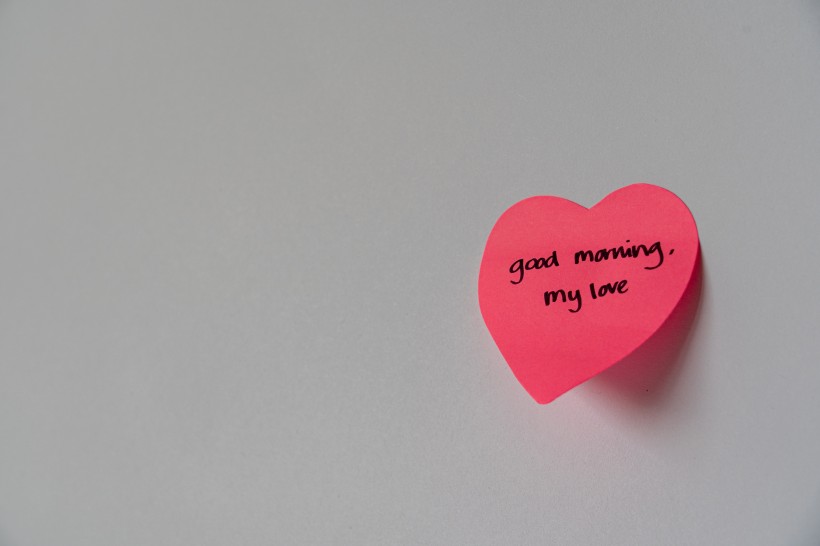 good morning,
my love